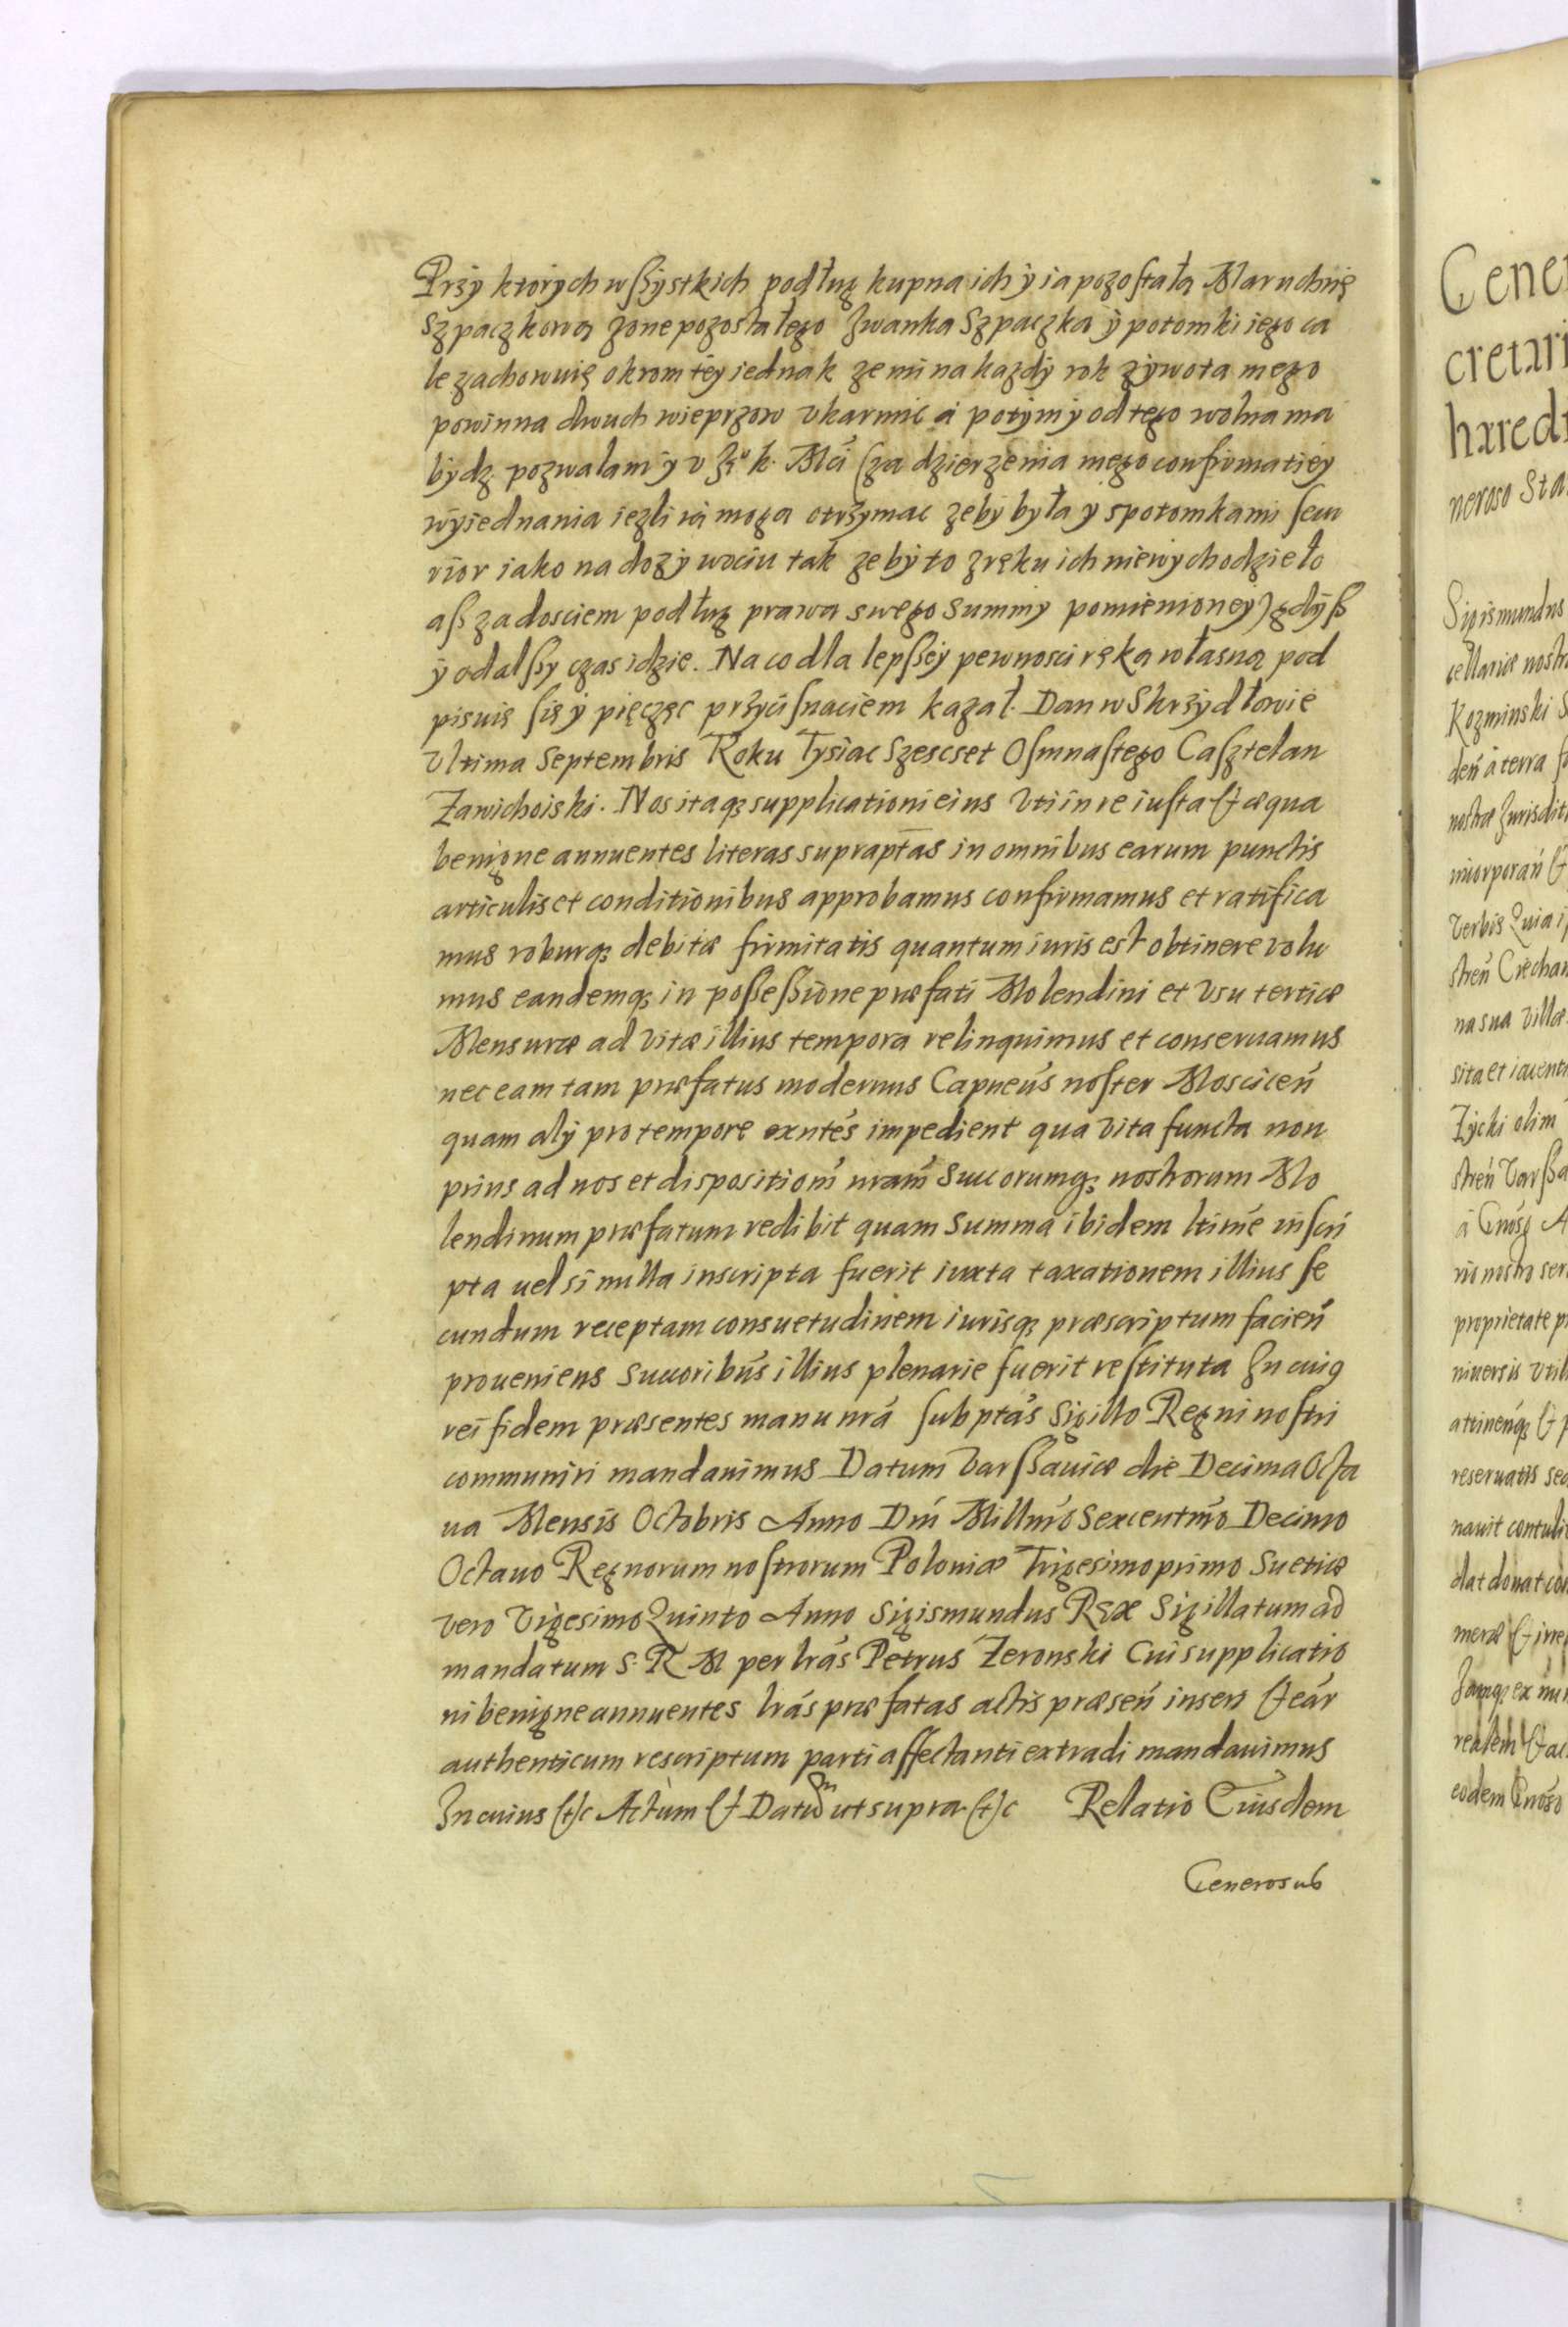 Przy ktorych wszystkich podług kupna ich y ia pozostałą Maruchnę
Szpaczkową zone pozostałego Iwanka Szpaczka y potomki iego ca
le zachowuię okrom tey iednak ze mi na kazdy rok zywota mego
powinna dwuch wieprzow vkarmic a potym y od tego wolna ma
bydz pozwalam y v k. Mći (za dzierzenia mego confirmatiey
wyiednania iezli ią moga otrzymac zeby była y spotomkami
iako na dozywociu tak zeby to z ręku ich niewychodzieło
aß za dosciem podług prawa swego summy pomienioney) gdyß
y odalßy czas idzie. Na co dla lepßey pewnosci ręką własną pod
pisuię się y pięczęc przycisnaciem kazał. Dan w Skrzydłowie
Vltima Septembris Roku Tysiac Szescset Osmnastego Casztelan
Zawichoiski. Nos itaq; supplicationi eius vti in re iusta & æqua
benigne annuentes literas supraptas in omnibus earum punctis
articulis et conditionibus approbamus confirmamus et ratifica
mus roburq; debitæ firmitatis quantum iuris est obtinere volu
mus eandemq; in poßeßione præfati Molendini et vsu tertiæ
Mensuræ ad vitæ illius tempora relinquimus et conseruamus
nec eam tam præfatus modernus Capneus noster Moscicen
quam alij pro tempore exntes impedient qua vita functa non
prius ad nos et disposition nram Succorumq; nostrorum Mo
lendinum præfatum redibit quam Summa ibidem ltime inscri
pta uel si nulla inscripta fuerit iuxta taxationem illius se
cundum receptam consuetudinem iurisq; præscriptum facien
proueniens Succoribus illius plenarie fuerit restituta In cuig
rei fidem præsentes manu nra subptas Sigillo Regni nostri
communiri mandauimus Datum Varßauiæ die Decima Octa
ua Mensis Octobris Anno Dni Millmo Sexcentmo Decimo
Octauo Regnorum nostrorum Poloniæ Trigesimo primo Suetiæ
vero Vigesimo Quinto Anno Sigismundus Rex Sigillatum ad
mandatum S. R M per lras Petrus Zeronski Cui supplicatio
ni benigne annuentes lras præfatas actis præsen inseri & ear
authenticum rescriptum parti affectanti extradi mandauimus
In cuius &c Actum & Datum ut supra &c Relatio Eiusdem
Generosus
Gene
cretari
hæredi
neroso Sta
Sigismundus
cellariæ nostr
Kozminski S
den a terra
nostræ Iurisdit
incorporan &
verbis Quia i
stren Ciechan
na sua villæ
sita et iacenti
Zycki olim
stren Varßa
a Gnoso A
rio nostro ser
proprietate p
niuersis vtil
attinenq; & p
reseruatis sed
nauit contuli
dat donat con
meræ & irre
Iamq; ex nun
realem & ac
eodem Gnoso